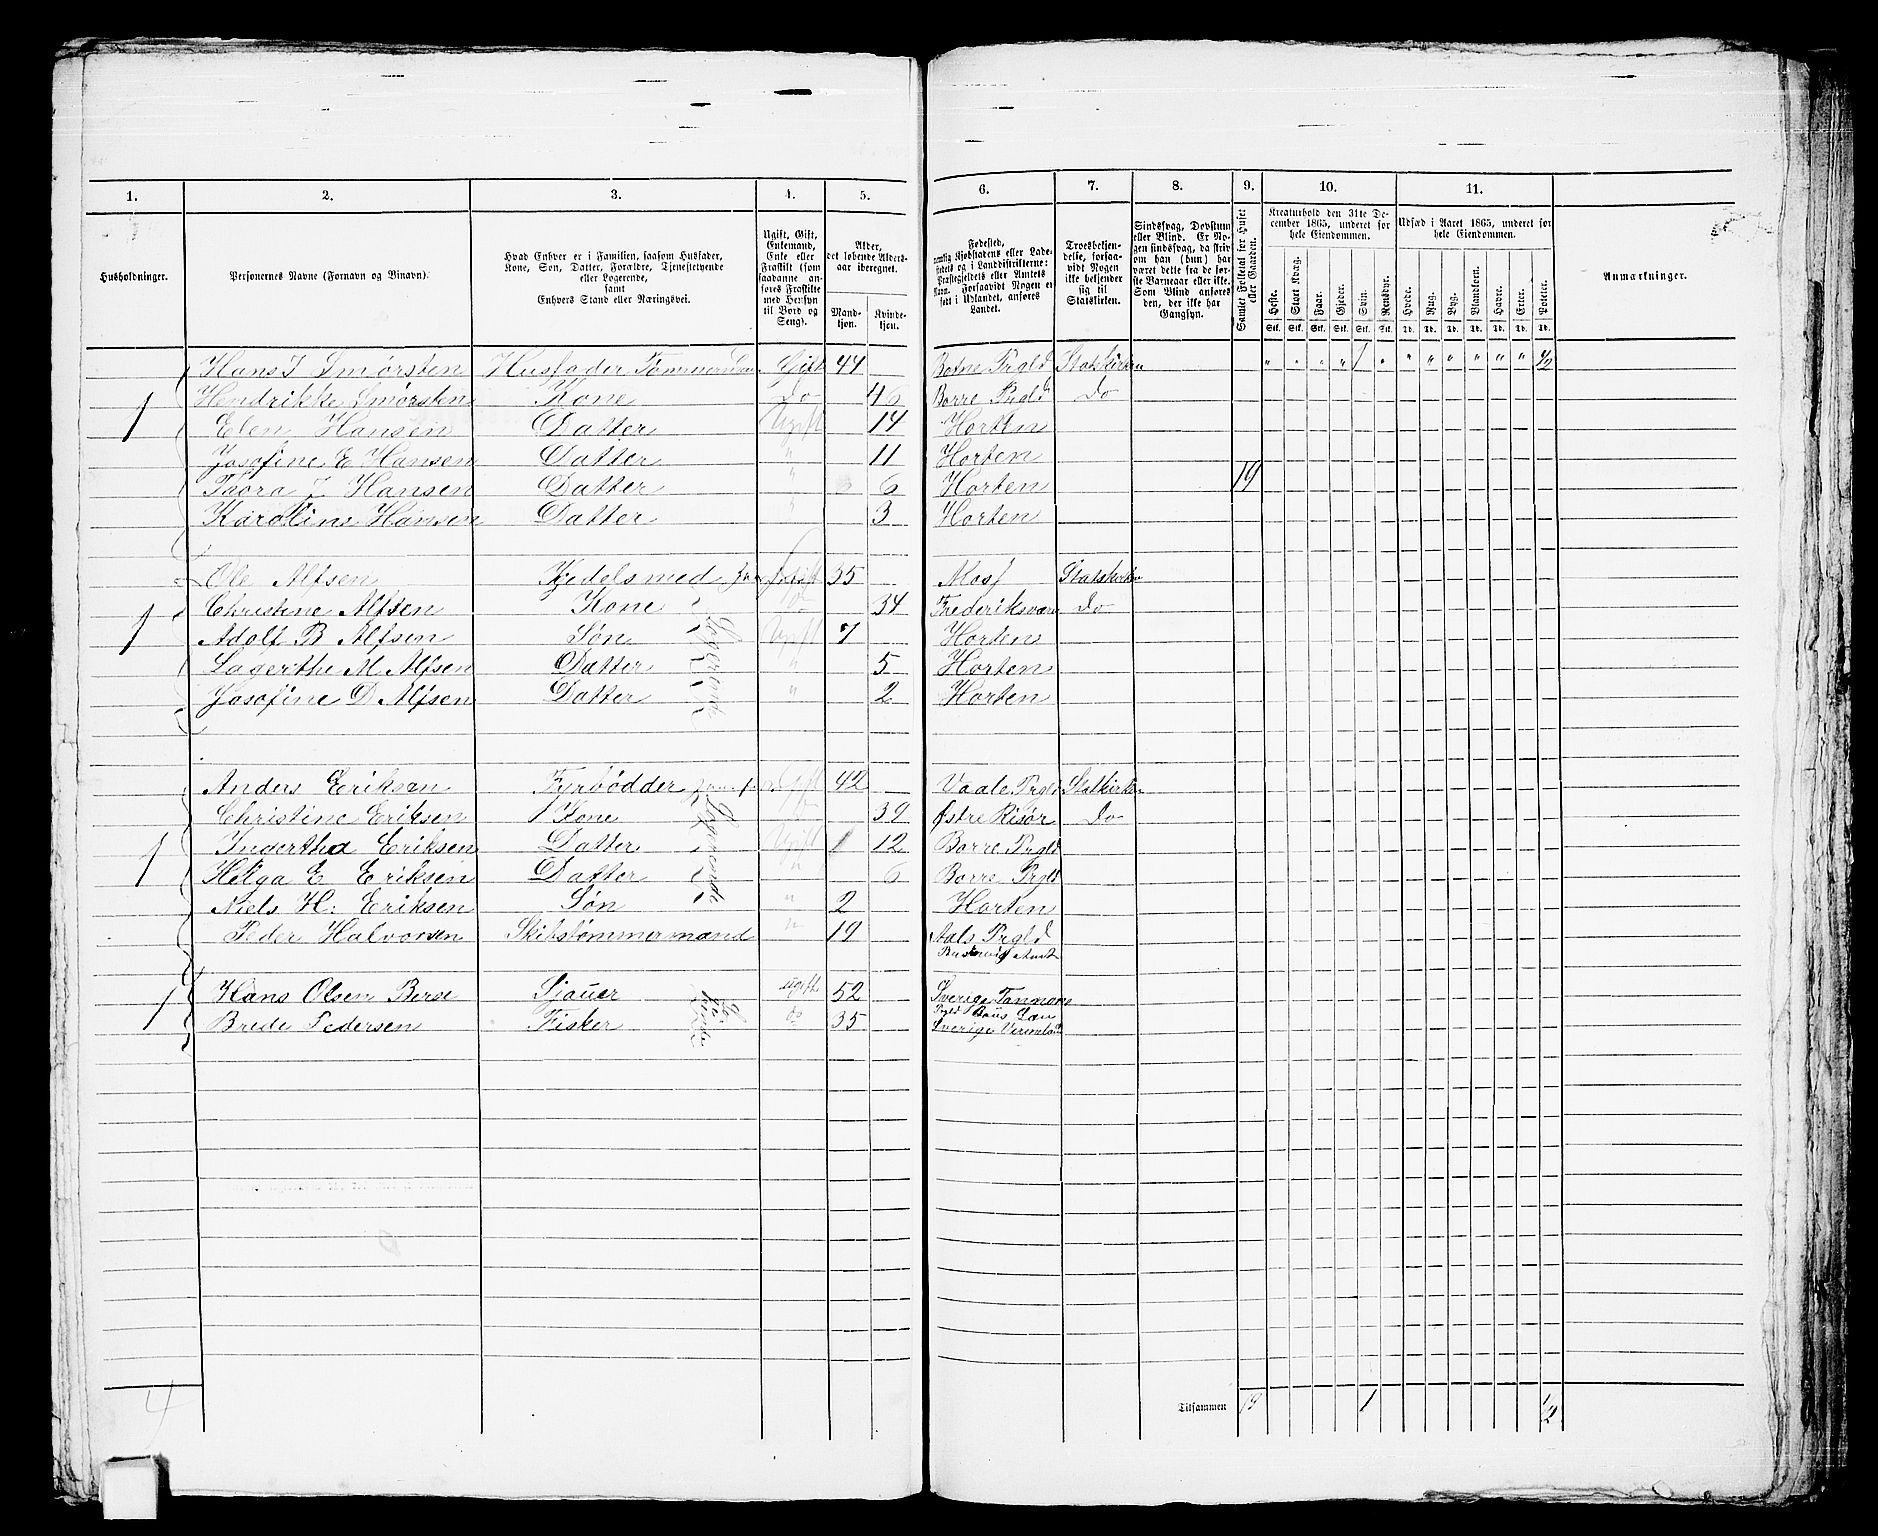 1. 2. 3. 4. 5. 6. 7. 8. 9. 10. 11.
Husholdninger.
Personernes Navne (Fornavn og Binavn).
Hvad Enhver er i Familien, saasom Husfader, Kone, Søn, Datter, Forældre, Tjenestetyende eller Logerende, samt Enhvers Stand eller Næringsvei.
Ugift, Gift, Enkemand, Enke eller Fraskilt (som saadanne anføres Fraskilte med Hensyn til Bord og Seng).
Alder, det løbende Aldersaar iberegnet.
Mandkjøn. Kvindekjøn.
Fødested, nemlig Kjøbstadens eller Ladestedets og i Landdistrikterne: Præstegjeldets eller Amtets Navn. Forsaavidt Nogen er født i Udlandet, anføres Landet.
Troesbekjendelse, forsaavidt Nogen ikke bekjender sig til Statskirken.
Sindssvag, Døvstum eller Blind. Er Nogen sindssvag, da skrives om han (hun) har været dette fra de første Barneaar eller ikke. Som Blind anføres den, der ikke har Gangsyn.
Samlet Folketal for Huset eller Gaarden.
Kreaturhold den 31te December 1865, underet for hele Eiendommen.
Heste. Stort Kvæg. Faar. Gjeder. Svin. Rensdyr.
Stk. Stk. Stk. Stk. Stk. Stk.
Udsæd i Aaret 1865, underet for hele Eiendommen.
Hvede. Rug. Byg. Blandkorn. Havre. Erter. Poteter.
Td. Td. Td. Td. Td. Td. Td.
Anmærkninger.
Hans J Smørsten Husfader Tømmermand Gift 44 Botne Prgld Statskirken " " " " 1 " " " " " " " 1/2
1 Hendrikke Smørsten Kone Do 46 Borre Prgld Do
Elen Hansen Datter Ugift 14 Horten
Josofine E Hansen Datter " 11 Horten
Thora J Hansen Datter " 6 Horten 19
Karoline Hansen Datter " 3 Horten
Ole Alfsen Kjedelsmed Gift 35 Moss Statskirken
Christine Alfsen Kone Do 34 Frederiksværn Do
1 Adolf B Alfsen Søn Logerende Ugift 7 Horten
Lagerthe M Alfsen Datter " 5 Horten
Josofine D Alfsen Datter " 2 Horten
Anders Eriksen Fyrbødder Gift 42 Vaale Prgld Statkirken
Christine Eriksen Kone Do 39 Østre Risør Do
1 Ingertha Eriksen Datter Logerende Ugift 12 Borre Prgld
Helga E Eriksen Datter " 6 Borre Prgld
Niels H: Eriksen Søn " 2 Horten
Peder Halvorsen Skibstømmermand " 19 Aals Prgld
Buskerud Amt
1 Hans Olsen Berse Sjauer ugift 52 Sverige Tanmors
Prgld Baus Len
Brede Pedersen Fisker do 35 Sverige Vermland
4
Tilsammen 19 1 1/2